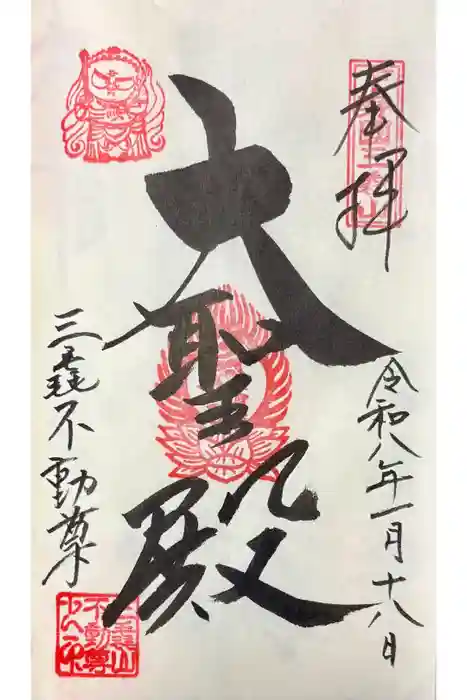 奉拝
令和八年一月十八日
大聖殿
三毳不動尊